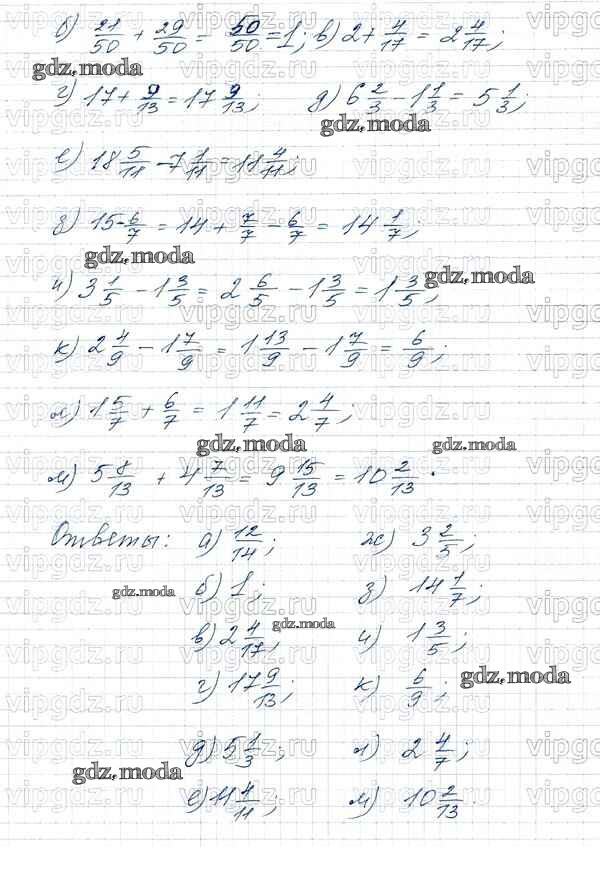 б) 21/50 + 29/50 = 50/50 = 1; в) 2 + 4/17 = 2 4/17;
gdz.moda
г) 17 + 9/13 = 17 9/13; д) 6 2/3 - 1 1/3 = 5 1/3;
gdz.moda
е) 18 5/11 - 7 1/11 = 11 4/11;
з) 15 - 6/7 = 14 + 7/7 - 6/7 = 14 1/7;
gdz.moda
и) 3 1/5 - 1 3/5 = 2 6/5 - 1 3/5 = 1 3/5;
gdz.moda
к) 2 4/9 - 1 7/9 = 1 13/9 - 1 7/9 = 6/9;
л) 1 5/7 + 6/7 = 1 11/7 = 2 4/7;
gdz.moda gdz.moda
м) 5 8/13 + 4 7/13 = 9 15/13 = 10 2/13.
Ответы: а) 12/14; ж) 3 2/5;
gdz.moda
б) 1; з) 14 1/7;
gdz.moda
в) 2 4/17; и) 1 3/5;
г) 17 9/13; к) 6/9;
gdz.moda
д) 5 1/3; л) 2 4/7;
gdz.moda
е) 11 4/11; м) 10 2/13.
vipgdz.ru